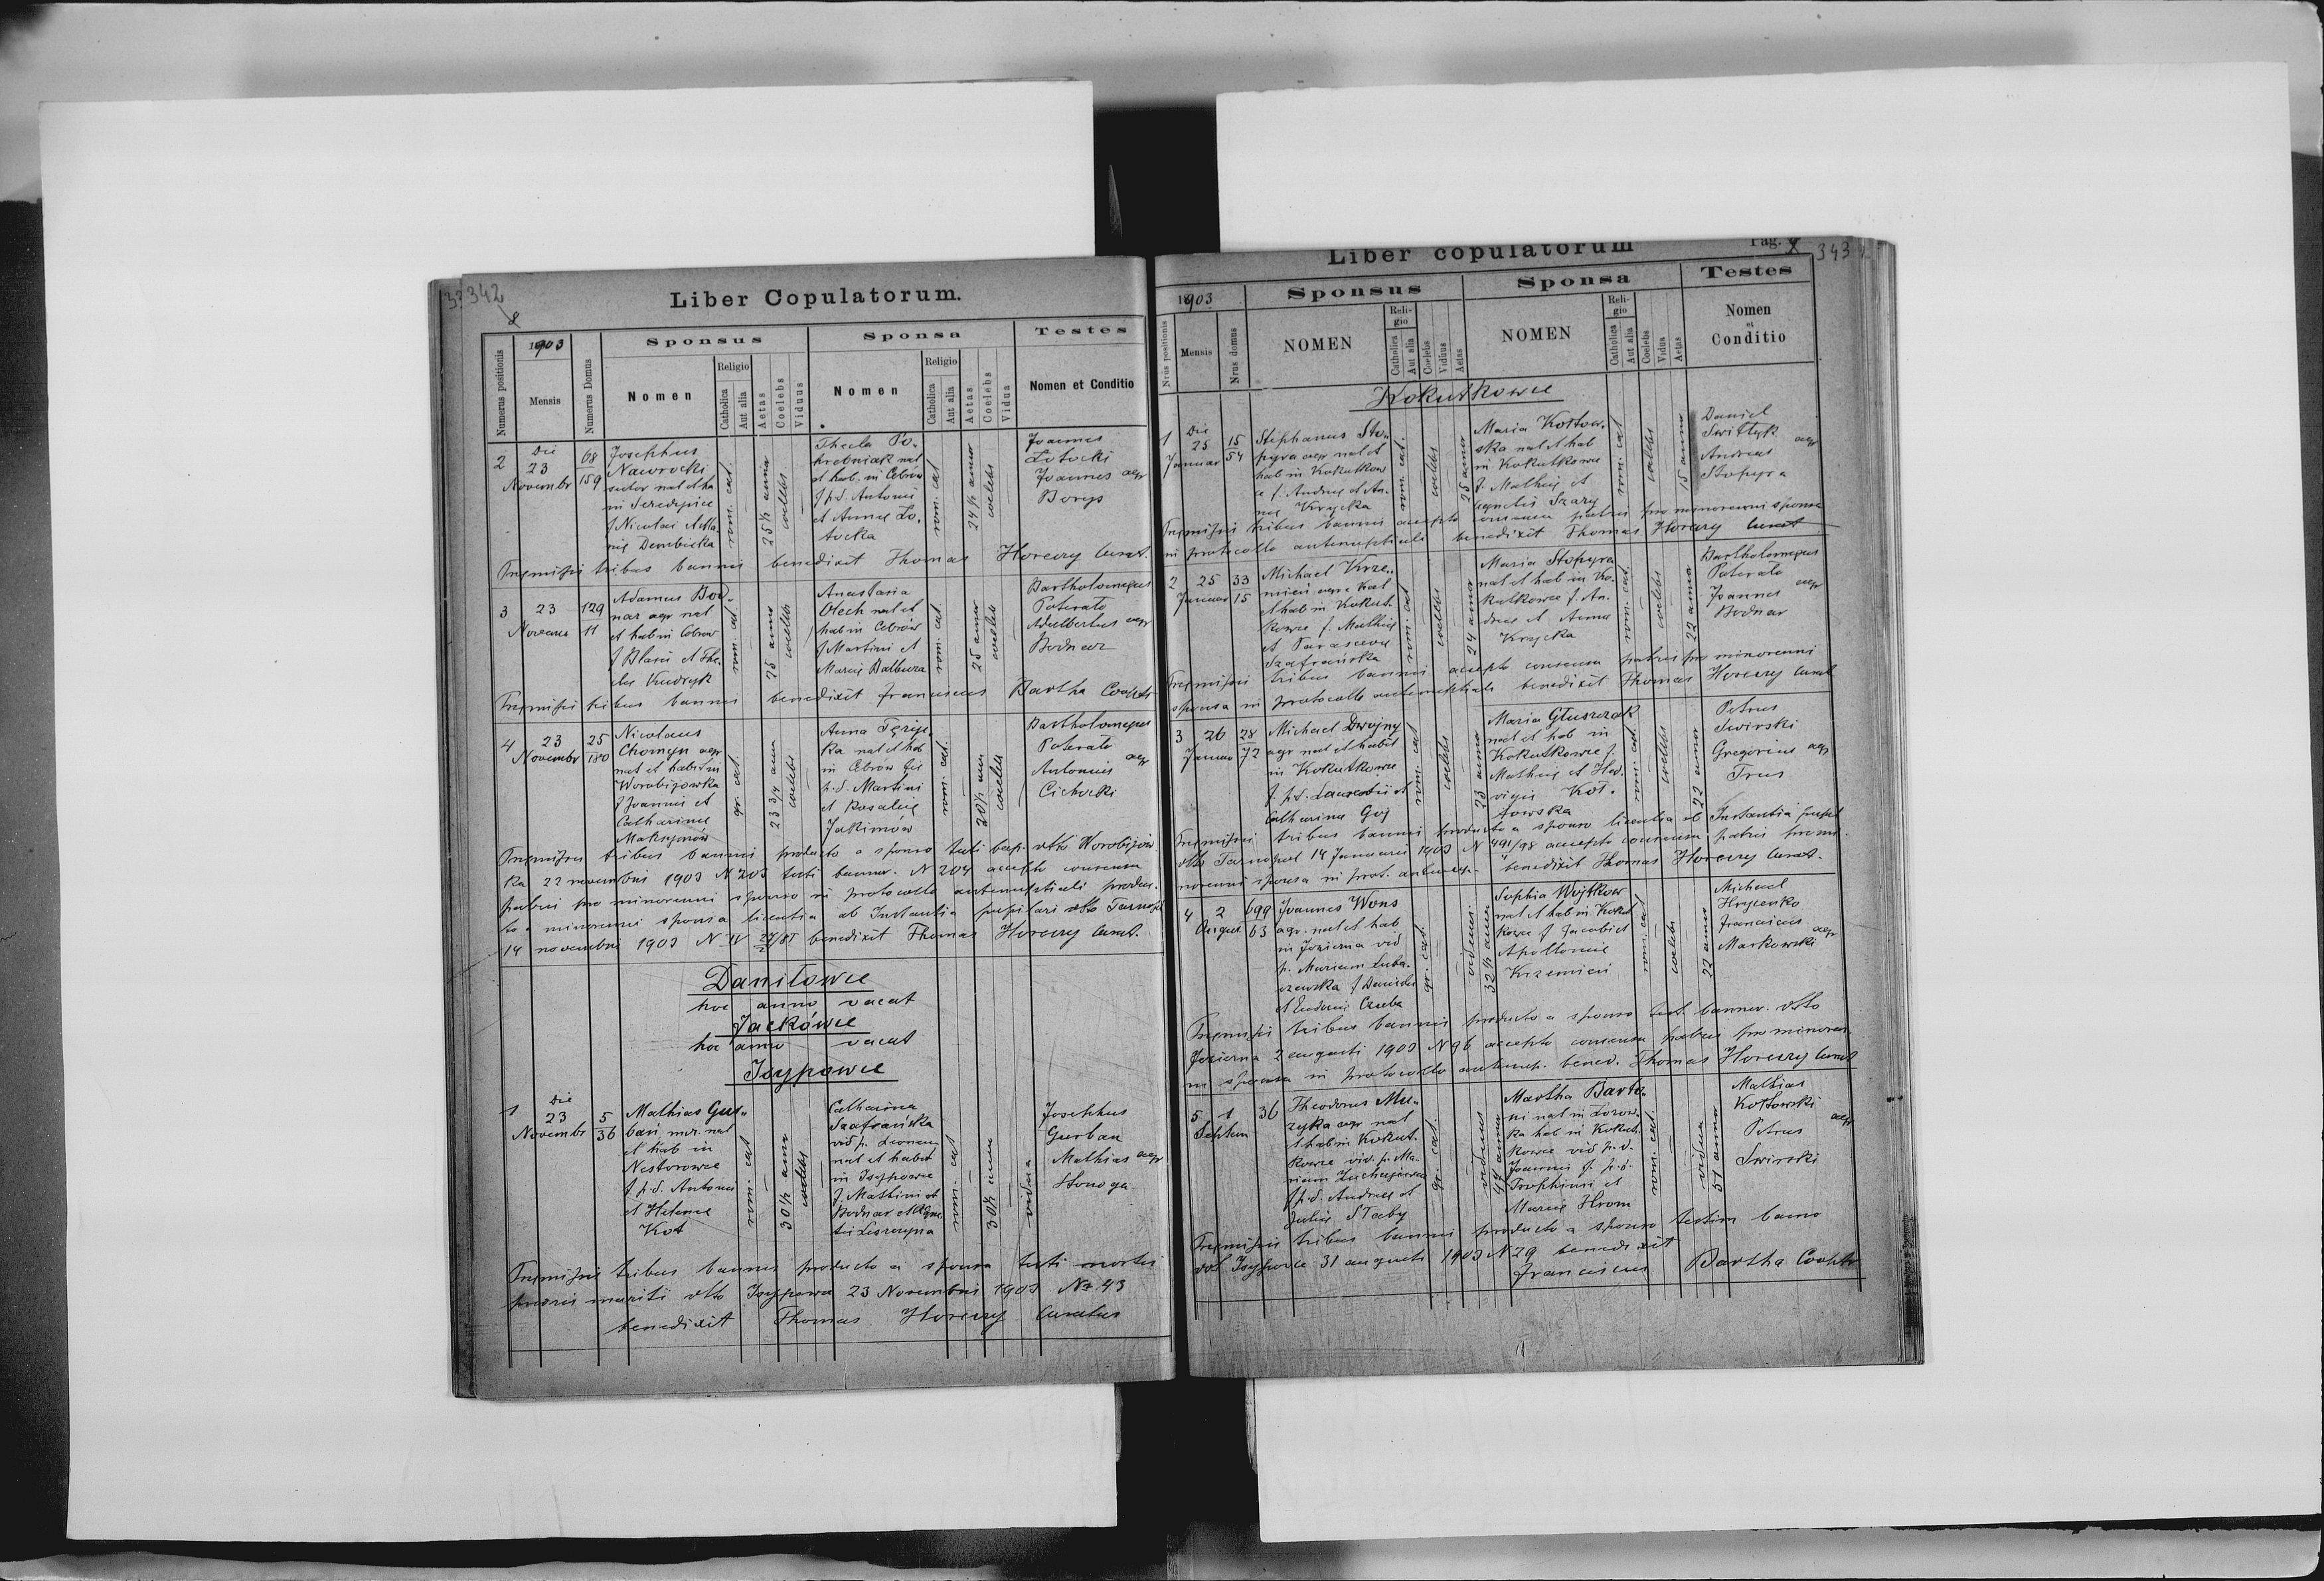 342
Liber Copulatorum.
Numerus positionis
1903
Mensis
Numerus Domus
Sponsus
Nomen
Religio
Catholica
Aut alia
Aetas
Coelebs
Viduus
Sponsa
Nomen
Religio
Catholica
Aut alia
Aetas
Coelebs
Vidua
Testes
Nomen et Conditio
2
Die
23
Novembr
68
159
Josephus
Nawrocki
sutor nat et ha
in Seredyńce
f Nicolai et Ma
nie Dembicka
rom. cat.
25½ anno
coelebs
Thecla Po-
hrebniak nat
et hab. in Cebrów
f p.d. Antonii
et Annae Lo-
tocka
rom. cat
24½ annor
coelebs
Joannes
Lotocki
Joannes agr
Borys
Praemissis tribus bannis benedixit Thomas Horeczy Curat.
3
23
Novem
129
11
Adamus Bod-
nar agr nat
et hab in Cebrow
f Blasii et The-
clae Kudryk
rom. cat
25 anno
coelebs
Anastasia
Olech nat et
hab in Cebrów
f Martini et
Mariae Balbuza
rom. cat.
25 annor
coelebs
Bartholomeus
Poterało
Adalbertus agr
Bodnar
Praemissis tribus bannis benedixit Franciscus Bartha Cooptr
4
23
Novembr
25
180
Nicolaus
Chomyn agr
nat et habit in
Worobijowka
f Joannis et
Catharinae
Maksymów
gr. cat.
23 3/4 ann
coelebs
Anna
ka nat et hab
in Cebrów fil
p.d. Martini
et Rosaliae
Jakimów
rom. cat.
20½ ann
coelebs
Bartholomeus
Poterało
Antonius agr
Cichocki
Praemissis tribus bannis producto a sponso testi bapt. dtto Worobijów
ka 22 novembris 1903 N 203 testi bannor. N 204 accepto consensu
patris pro minorenni sponso in protocollo antenuptiali produc-
to a minorenni sponsa licentia ab Instantia pupilari dtto Tarnopol
14 novembris 1903 N IV benedixit Thomas Horeczy Curat.
Daniłowce
hoc anno vacat
Jackówce
hoc anno vacat
Isypowce
1
Die
23
Novembr
5
36
Mathias Gur-
ban mur. nat
et hab in
Nestorowce
f p.d. Antonii
et Helenae
Kot
rom. cat
30½ ann
coelebs
Catharina
Szafrańska
vid p.
nat et habit
in Isypowce
f. Martini et
Bodnar et Agne-
tis Leszczyna
rom. cat
30½ annor
vidua
Josephus
Gurban
Mathias agr
Stonoga
Praemissis tribus bannis producto a sponsa testi mortis
prioris mariti dtto Isypowce 23 Novembris 1903 No 43
benedixit Thomas Horeczy Curatus
Liber copulatorum
Pag.
343
Nrus positionis
1903
Mensis
Nrus domus
Sponsus
NOMEN
Reli-
gio
Catholica
Aut alia
Coelebs
Viduus
Aetas
Sponsa
NOMEN
Reli-
gio
Catholica
Aut alia
Coelebs
Vidua
Aetas
Testes
Nomen
et
Conditio
Kokutkowce
1
Die
25
Januar
15
54
Stephanus Sto-
pyra agr nat et
hab in Kokutkow
ce f. Andreae et An-
nae Krycka
rom. cat.
coelebs
25 annor
Maria Kotow-
ska nat et hab
in Kokutkowce
f. Mathiae et
Agnetis Szary
rom. cat
coelebs
15 anno
Daniel
Switlyk agr
Andreas
Stopyra
Praemissis tribus bannis accepto consensu patris pro minorenni sponsa
in protocollo antenuptiali benedixit Thomas Horeczy Curat
2
25
Januar
33
15
Michael Krze-
mień agr nat
et hab in Kokut-
kowce f. Mathiae
et Parascevae
Szafrańska
rom. cat
coelebs
24 annor
Maria Stopyra
nat et hab in Ko-
kutkowce f. An-
dreae et Annae
Krycka
rom. cat
coelebs
22 anno
Bartholomeus
Poterało
Joannes agr
Bodnar
Praemissis tribus bannis accepto consensu patris pro minorenni
sponsa in protocollo antenuptiali benedixit Thomas Horeczy Curat
3
26
Januar
28
72
Michael Dwojny
agr nat et habit
in Kokutkowce
f. p.d. Laurentii et
Catharina Goj
rom. cat
coelebs
23 anno
Maria Głuszczak
nat et hab in
Kokutkowce f.
Mathiae et Hed-
vigis Kot-
towska
rom. cat
coelebs
22 annor
Petrus
Swirski
Gregorius agr
Trus
Praemissis tribus bannis producto a sponso licentia ab Instantia pupil
dtto Tarnopol 14 Januarii 1903 N 491/98 accepto consensu patris promi-
norenni sponsa in prot. antenup. benedixit Thomas Horeczy Curat.
4
2
August
699
63
Joannes Wons
agr. nat et hab
in Jezierna vid
p. Mariam Luba-
czewska f Danielis
et Eudoxiae Czuba
gr. cat.
viduus
32½ anno
Sophia Wojtkow
nat et hab in Kokut
kowce f Jacobi et
Apolloniae
Krzemień
rom. cat
coelebs
22 anno
Michael
Hrycenko
Franciscus agr
Markowski
Praemissis tribus bannis producto a sponso test. bannor. dtto
Jezierna 2 augusti 1903 N 96 accepto consensu patris pro minoren
ni sponsa in protocollo antenup. bened. Thomas Horeczy Curat
5
1
Septem
36
Theodorus Mu-
zyka agr nat
et hab in Kokut-
kowce vid. p. Ma-
riam
f p.d. Andreae et
Juliae Słaby
gr. cat.
viduus
44 anno
Martha Barto-
ni nat in Zorow-
ka hab in Kokut-
kowce vid p.d.
Joannis f. p.d.
Trophimi et
Mariae Hrom
rom. cat.
vidua
51 anno
Mathias
Kottowski
Petrus agr
Swirski
Praemissis tribus bannis producto a sponso testim banno
dtto Isypowce 31 augusti 1903 N 29 benedixit
Franciscus Bartha Cooptr